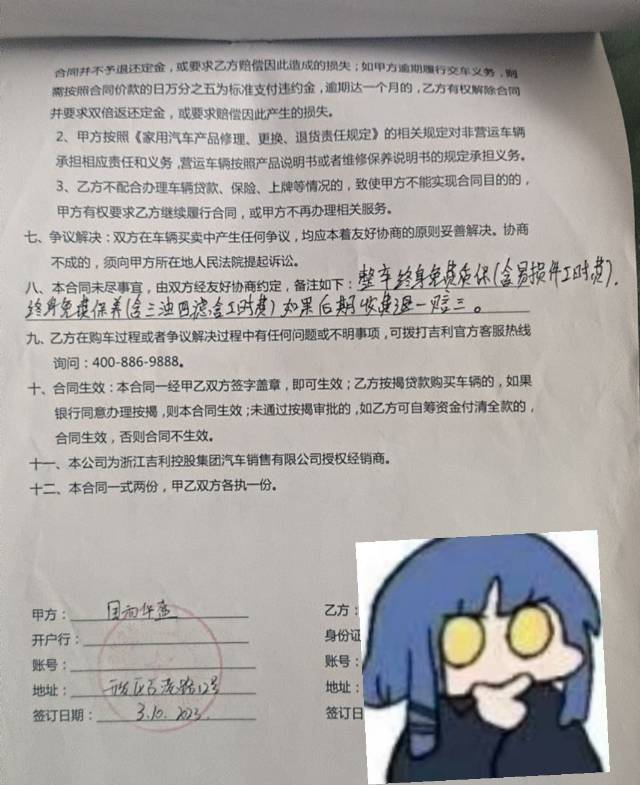 合同并不予退还定金，或要求乙方赔偿因此造成的损失；如甲方逾期履行交车义务，则
需按照合同价款的日万分之五为标准支付违约金，逾期达一个月的，乙方有权解除合同
并要求双倍返还定金，或要求赔偿因此产生的损失。
2、甲方按照《家用汽车产品修理、更换、退货责任规定》的相关规定对非营运车辆
承担相应责任和义务，营运车辆按照产品说明书或者维修保养说明书的规定承担义务。
3、乙方不配合办理车辆贷款、保险、上牌等情况的，致使甲方不能实现合同目的的，
甲方有权要求乙方继续履行合同，或甲方不再办理相关服务。
七、争议解决：双方在车辆买卖中产生任何争议，均应本着友好协商的原则妥善解决。协商
不成的，须向甲方所在地人民法院提起诉讼。
八、本合同未尽事宜，由双方经友好协商约定，备注如下：整车终身免费质保(含易损件工时费)，
终身免费保养(含三油四滤含工时费)如果后期收费退一赔三。
九、乙方在购车过程或者争议解决过程中有任何问题或不明事项，可拨打吉利官方客服热线
询问：400-886-9888。
十、合同生效：本合同一经甲乙双方签字盖章，即可生效；乙方按揭贷款购买车辆的，如果
银行同意办理按揭，则本合同生效；未通过按揭审批的，如乙方可自筹资金付清全款的，
合同生效，否则合同不生效。
十一、本公司为浙江吉利控股集团汽车销售有限公司授权经销商。
十二、本合同一式两份，甲乙双方各执一份。
甲方：
开户行：
账号：
地址：路12号
签订日期：3.10.2023.
乙方：
身份证
账号：
地址：
签订日